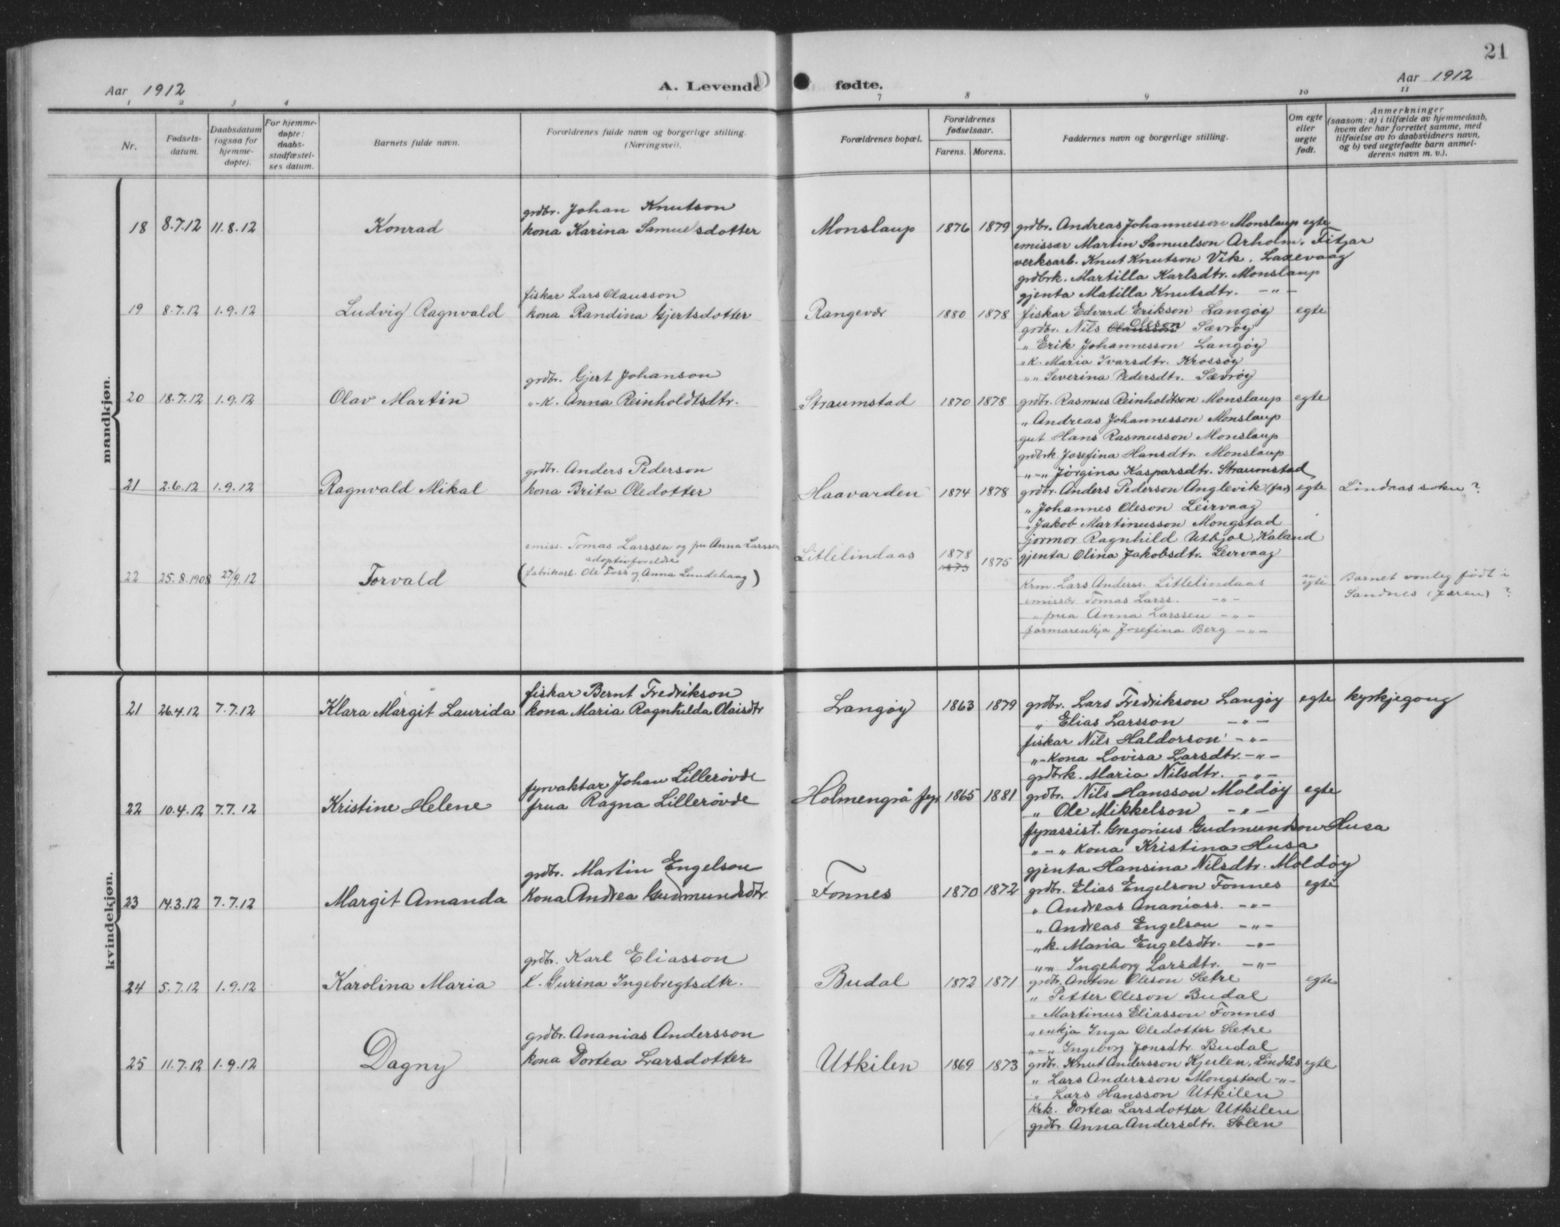 21
Aar 1912
A. Levende fødte.
Aar 1912
1 2 3 4 7 8 9 10 11
Nr.
Fødsels-
datum.
Daabsdatum
(ogsaa for
hjemme-
døpte).
For hjemme-
døpte:
daabs-
stadfæstel-
ses datum.
Barnets fulde navn.
Forældrenes fulde navn og borgerlige stilling.
(Næringsvei).
Forældrenes bopæl.
Forældrenes
fødselsaar.
Farens. Morens.
Faddernes navn og borgerlige stilling.
Om egte
eller
uegte
født.
Anmerkninger
(saasom: a) i tilfælde av hjemmedaab,
hvem der har forrettet samme, med
tilføielse av to daabsvidners navn,
og b) ved uegtefødte barn anmel-
derens navn m. v.).
mandkjøn.
grdbr. Johan Knutson
18 8.7.12 11.8.12 Konrad kona Karina Samuelsdotter Monslaup 1876 1879 grdbr. Andreas Johannesson Monslaup egte
emissær Martin Samuelson Arholm, Fitjar
verksarb. Knut Knutson Vik, Laxevaag
grdbrk. Martilla Karlsdtr. Monslaup
gjenta Matilla Knutsdtr. -"-
fiskar Lars Olausson
19 8.7.12 1.9.12 Ludvig Ragnvald kona Randina Gjertsdotter Rangevær 1880 1878 fiskar Edvard Erikson Langøy egte
grdbr. Nils Oleson Sævrøy
" Erik Johannesson Langøy
"k. Maria Ivarsdtr. Krossøy
" " Severina Pedersdtr. Sævrøy
grdbr. Gjert Johanson
20 18.7.12 1.9.12 Olav Martin "-k. Anna Reinholdtsdtr. Straumstad 1870 1878 grdbr. Rasmus Reinholdtson Monslaup egte
" Andreas Johannesson Monslaup
gut Hans Rasmusson Monslaup
grdbrk Josefina Hansdtr. Monslaup
"-" Jørgina Kasparsdtr. Straumstad
grdbr. Anders Pederson
21 2.6.12 1.9.12 Ragnvald Mikal kona Brita Oledotter Haavarden 1874 1878 grdbr. Anders Pederson Anglevik (far) egte Lindaas sokn?
" Johannes Oleson Leirvaag
" Jakob Martinusson Mongstad
jormor Ragnhild Utbjoe, Kaland
gjenta Olina Jakobsdtr. Leirvaag
emiss. Tomas Larssen og fru Anna Larssen
adoptivforeldre
22 25.8.1908 27/9.12 Torvald (fabrikarb. Ole Foss og Anna Lundehaug) Litlelindaas 1878 1873 1875
Krm. Lars Anderss. Litlelindaas egte Barnet vonleg født i
emissær Tomas Larss. -"- Sandnes (Jæren)?
" frua Anna Larssen -"-
farmarenkja Josefina Berg -"-
kvindekjøn.
fiskar Bernt Fredrikson
21 26.4.12 7.7.12 Klara Margit Laurida kona Maria Ragnhilda Olaisdtr Langøy 1863 1879 grdbr. Lars Fredrikson Langøy egte kyrkjegong
" Elias Larsson -"-
fiskar Nils Haldorson -"-
"-kona Lovisa Larsdtr. -"-
grdbrk. Maria Nilsdtr. -"-
fyrvaktar Johan Lillerøvde
22 10.4.12 7.7.12 Kristine Helene frua Ragna Lillerøvde Holmengrå fyr 1865 1881 grdbr. Nils Hansson Moldøy egte
" Ole Mikkelson -"-
fyrassist. Gregorius Gudmundson Husa
"-" kona Kristina Husa
gjenta Hansina Nilsdtr. Moldøy
grdbr. Martin Engelson
23 14.3.12 7.7.12 Margit Amanda kona Andrea Gudmundsdtr Fonnes 1870 1872 grdbr. Elias Engelson Fonnes egte
" Andreas Ananiass. -"-
" Andreas Engelson -"-
"k. Maria Engelsdtr. -"-
" " Ingeborg Larsdtr. -"-
grdbr. Karl Eliasson
24 5.7.12 1.9.12 Karolina Maria k. Gurina Ingebregtsdtr. Budal 1872 1871 grdbr. Anton Oleson Sætre egte
" Petter Oleson Budal
" Martinus Eliasson Fonnes
" enkja Inga Oledotter Sætre
"-" Ingeborg Jonsdtr. Budal
grdbr. Ananias Andersson
25 11.7.12 1.9.12 Dagny kona Dortea Larsdotter Utkilen 1869 1873 grdbr. Knut Andersson Kjeilen, Lindås egte
" Lars Andersson Mongstad -"-
" Lars Hansson Utkilen
Krk. Dortea Larsdotter Utkilen
grdbr Anna Andersdtr. Solen